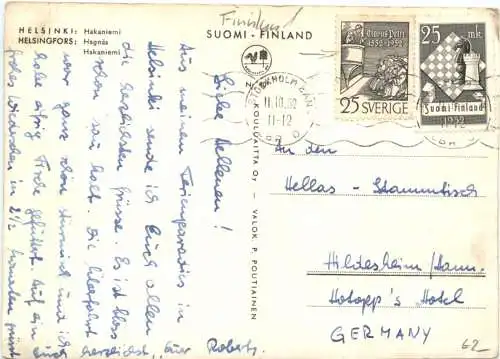 HELSINKI: Hakaniemi
HELSINGFORS: Hagnäs
Hakaniemi
Finnland
SUOMI - FINLAND
Liebe Hellenen!
Aus meinem Ferienparadies in
Helsinki sende ich Euch allen
die herzlichsten Grüsse. Es ist bloss
schon sau kalt. Die Überfahrt
war ganz schön stürmisch und ich
habe eifrig Fische gefüttert. Auf ein
frohes Wiedersehen in 2½ Monaten grüsst
Euch herzlichst, Euer Robert.
KOULUAITTA OY — VALOK. P. POUTIAINEN
STOCKHOLM BAN
11.10.52
11-12
Olavus Petri
1552-1952
25 SVERIGE
25 mk.
Suomi-Finland
1952
An den
Hellas - Stammtisch
Hildesheim/Hann.
Hotopp's Hotel
GERMANY
62-